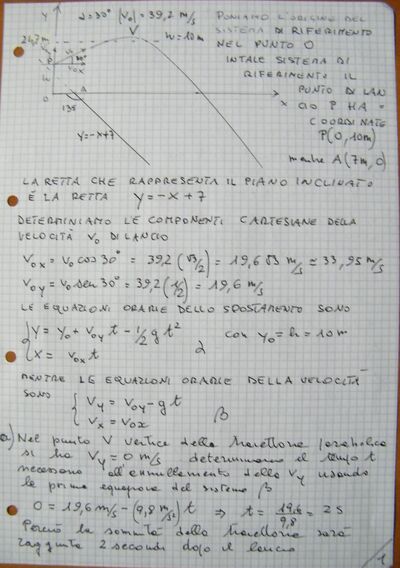 α=30° |V₀| = 39,2 m/s
PONIAMO L'ORIGINE DEL
SISTEMA DI RIFERIMENTO
NEL PUNTO O
IN TALE SISTEMA DI
RIFERIMENTO IL
PUNTO DI LAN
CIO P HA
COORDINATE
P(0,10m)
mentre A(7m,0)
y
V
h=10m
V₀
30°
V₀x
P
h
O
A
x
135
y=-x+7
LA RETTA CHE RAPPRESENTA IL PIANO INCLINATO
È LA RETTA y=-x+7
DETERMINIAMO LE COMPONENTI CARTESIANE DELLA
VELOCITÀ V₀ DI LANCIO
V₀x = V₀ cos30° = 39,2 (√3/2) = 19,6 √3 m/s ≃ 33,95 m/s
V₀y = V₀ sen30° = 39,2 (1/2) = 19,6 m/s
LE EQUAZIONI ORARIE DELLO SPOSTAMENTO SONO
{ y = y₀ + V₀y t - 1/2 g t² con y₀ = h = 10m
x = V₀x t α
MENTRE LE EQUAZIONI ORARIE DELLA VELOCITÀ
SONO { Vy = V₀y - gt
Vx = V₀x β
a) Nel punto V vertice della traiettoria parabolica
si ha Vy = 0 m/s determiniamo il tempo t
necessario all'annullamento della Vy usando
la prima equazione del sistema β
0 = 19,6 m/s - (9,8 m/s²) t ⇒ t = 19,6/9,8 = 2s
Perciò la sommità della traiettoria sarà
raggiunta 2 secondi dopo il lancio
1